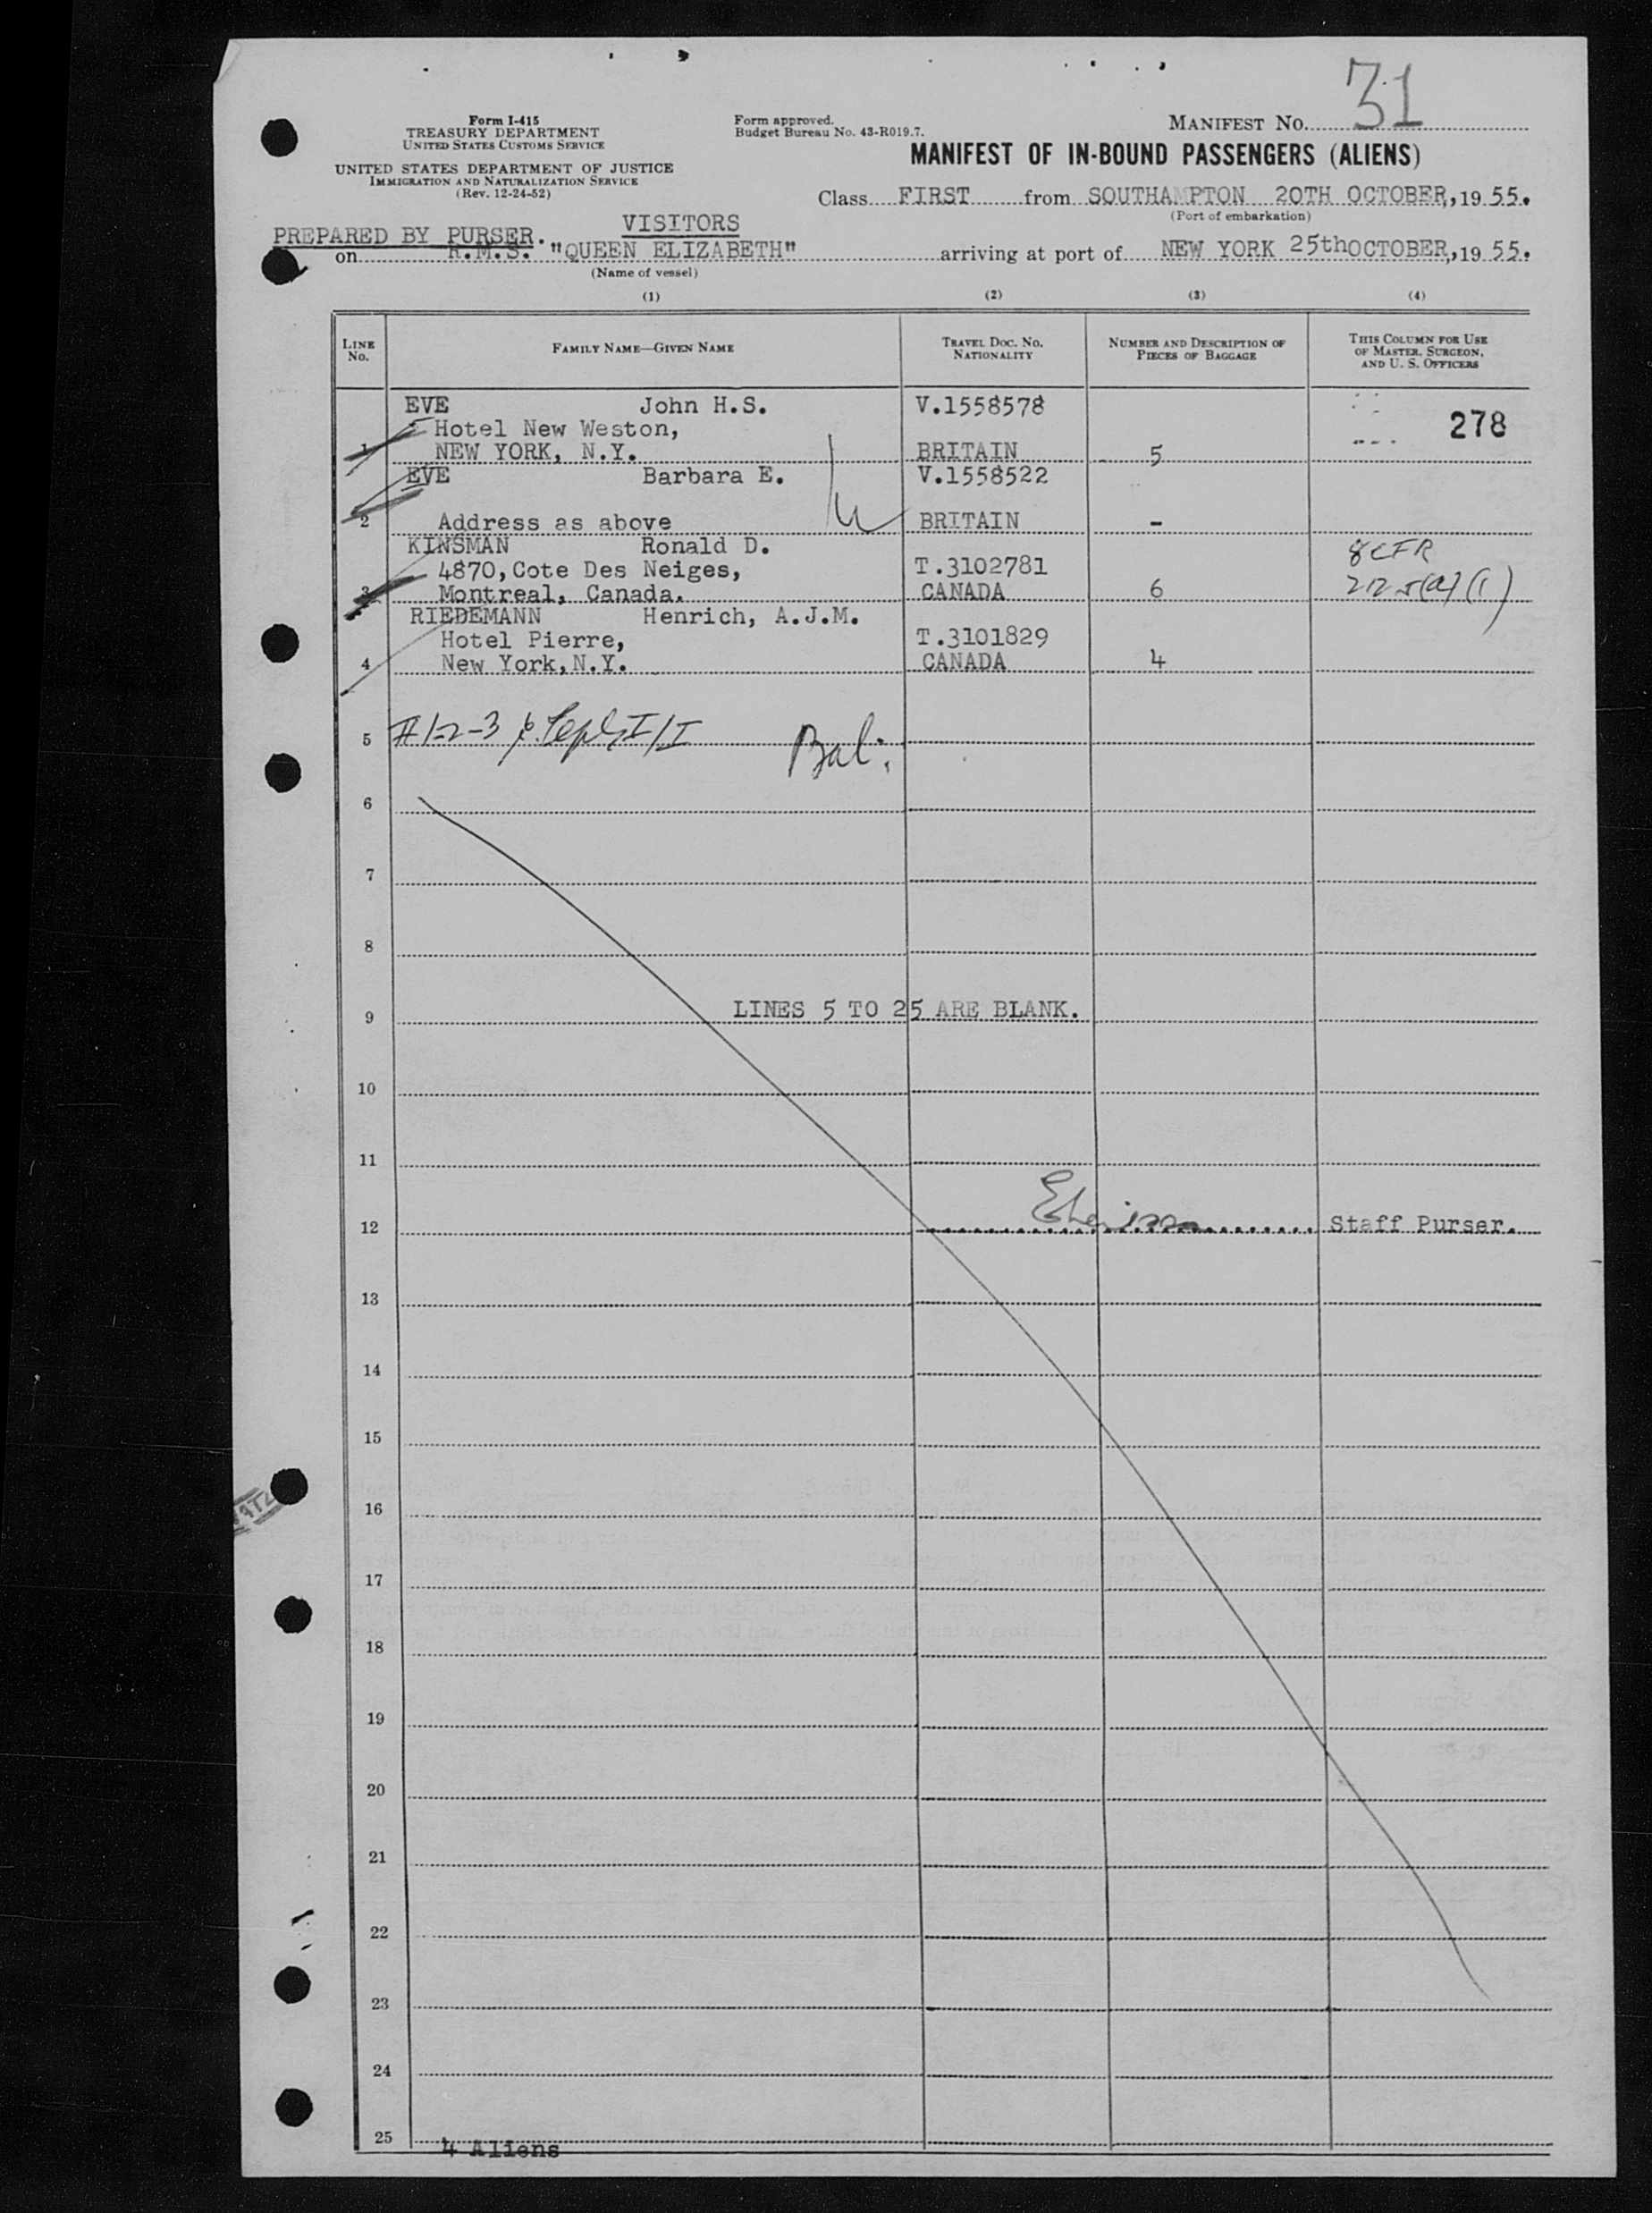 31
Form I-415
TREASURY DEPARTMENT
UNITED STATES CUSTOMS SERVICE
UNITED STATES DEPARTMENT OF JUSTICE
IMMIGRATION AND NATURALIZATION SERVICE
(Rev. 12-24-52)
Form approved.
Budget Bureau No. 43-R019.7.
MANIFEST No.
MANIFEST OF IN-BOUND PASSENGERS (ALIENS)
Class FIRST from SOUTHAMPTON 20TH OCTOBER, 1955.
(Port of embarkation)
VISITORS
PREPARED BY PURSER.
on R.M.S. "QUEEN ELIZABETH" arriving at port of NEW YORK 25th OCTOBER, 1955.
(Name of vessel)
(1) (2) (3) (4)
LINE No. FAMILY NAME—GIVEN NAME TRAVEL DOC. NO. NATIONALITY NUMBER AND DESCRIPTION OF PIECES OF BAGGAGE THIS COLUMN FOR USE OF MASTER, SURGEON, AND U. S. OFFICERS
EVE John H.S. V.1558578
Hotel New Weston, 278
1 NEW YORK, N.Y. BRITAIN 5
EVE Barbara E. V.1558522
2 Address as above BRITAIN -
KINSMAN Ronald D. 8 CFR
4870, Cote Des Neiges, T.3102781
3 Montreal, Canada. CANADA 6 212.5(a)(1)
RIEDEMANN Henrich, A.J.M.
Hotel Pierre, T.3101829
4 New York, N.Y. CANADA 4
5 #1-2-3 I/I Bal:
6
7
8
9 LINES 5 TO 25 ARE BLANK.
10
11
12 Staff Purser.
13
14
15
16
17
18
19
20
21
22
23
24
25 4 Aliens